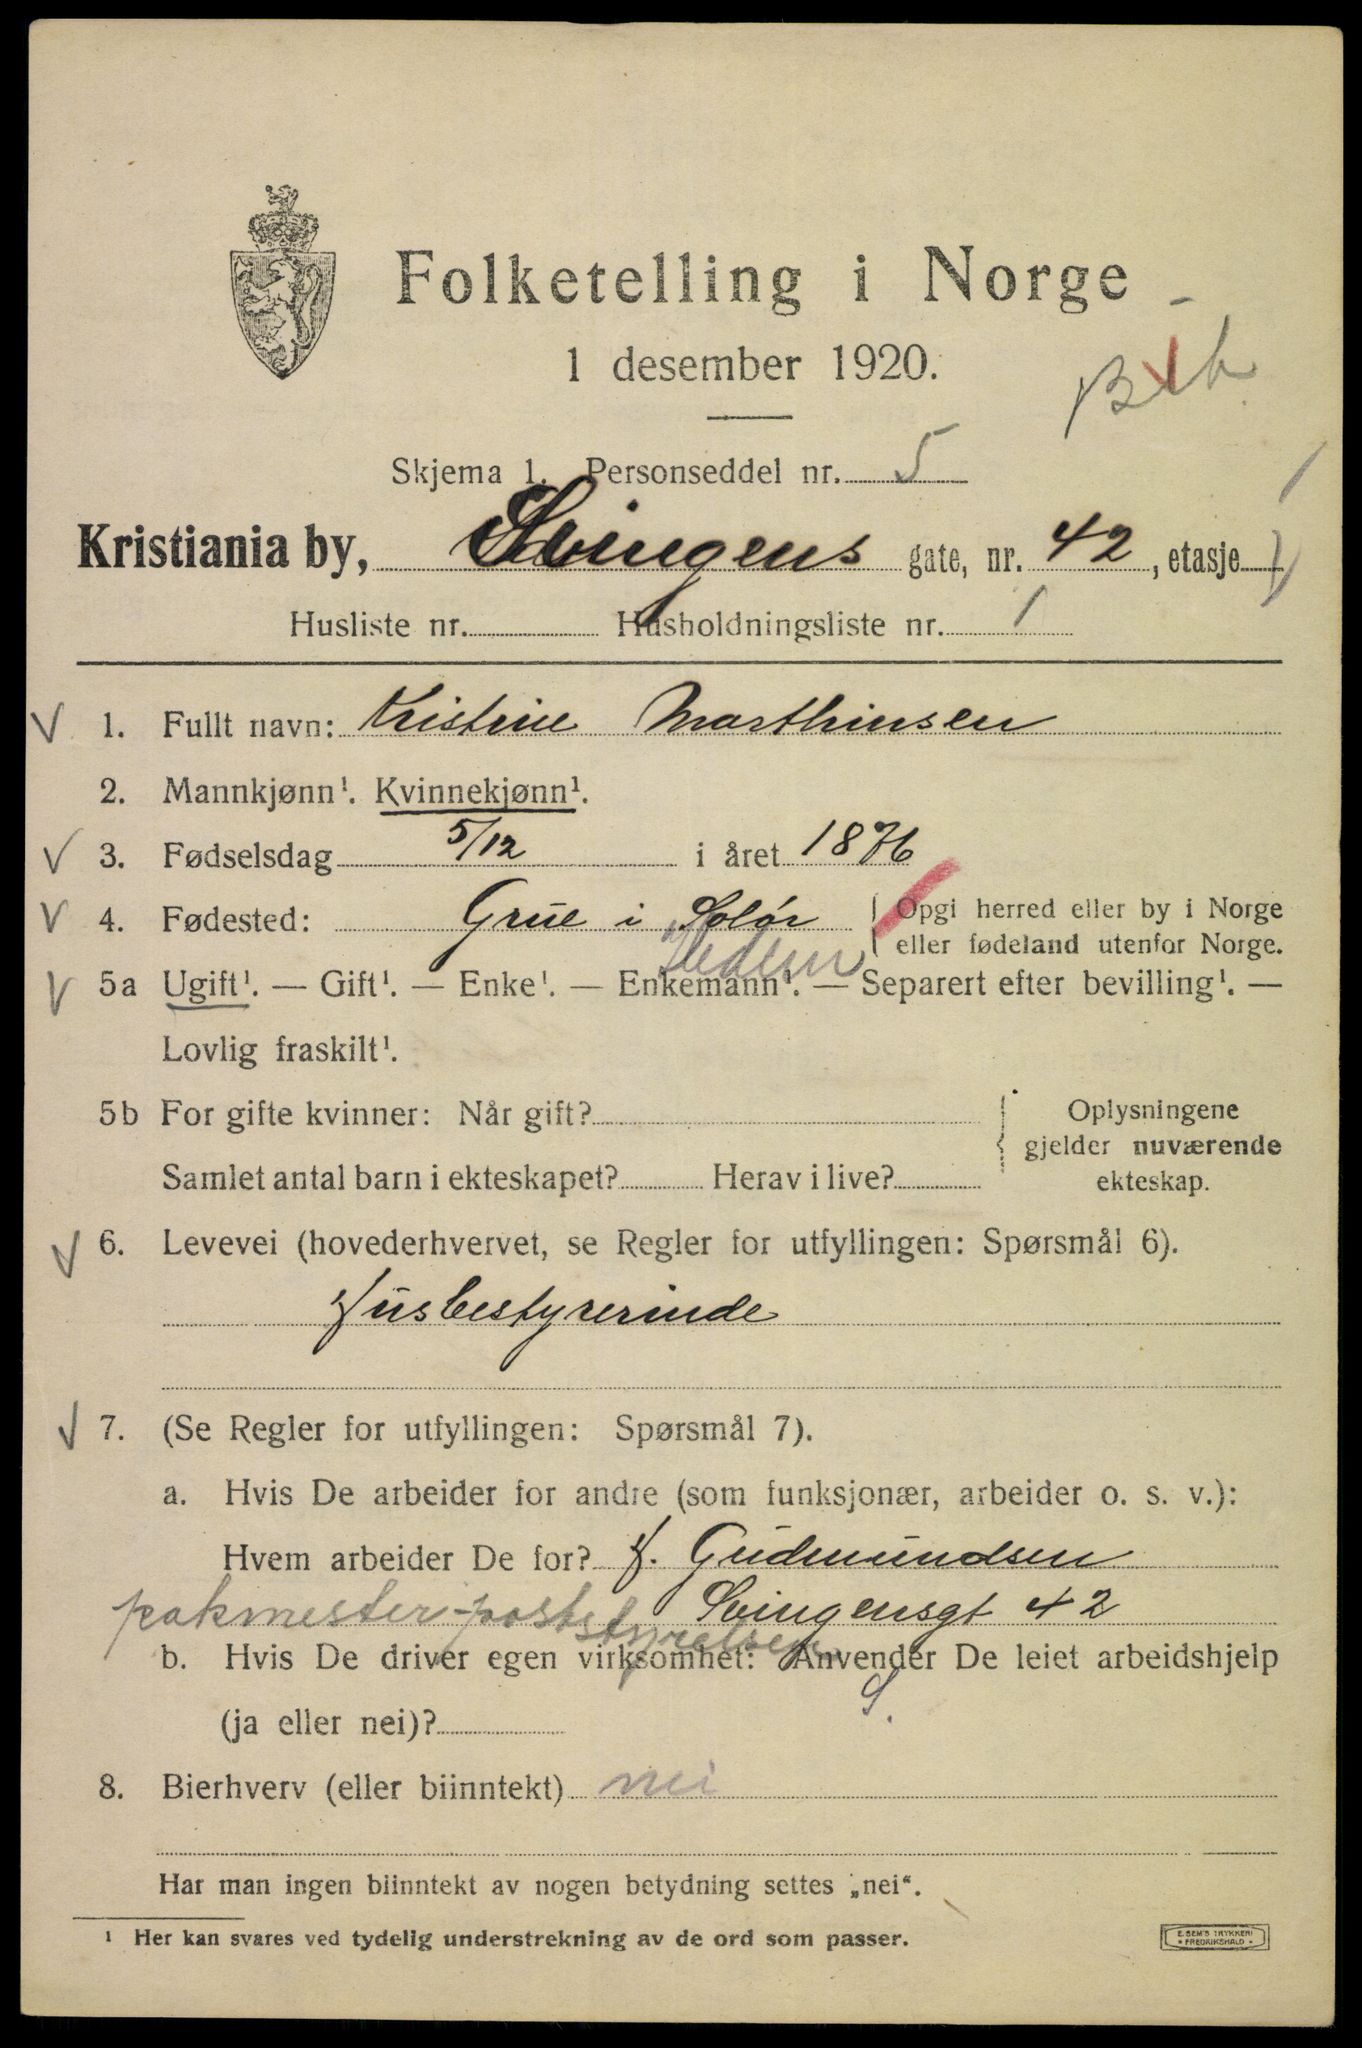 Folketelling i Norge
1 desember 1920.
Skjema 1. Personseddel nr. 5
Kristiania by, Svingens gate, nr. 42, etasje
Husliste nr. Husholdningsliste nr. 1
1. Fullt navn: Kristine Marthinsen
2. Mannkjønn¹. Kvinnekjønn¹.
3. Fødselsdag 5/12 i året 1876
4. Fødested: Grue i Solør Opgi herred eller by i Norge
eller fødeland utenfor Norge.
Hedem
5a Ugift¹. — Gift¹. — Enke¹. — Enkemann¹. — Separert efter bevilling¹. —
Lovlig fraskilt¹.
5b For gifte kvinner: Når gift? Oplysningene
gjelder nuværende
Samlet antal barn i ekteskapet? Herav i live? ekteskap.
6. Levevei (hovederhvervet, se Regler for utfyllingen: Spørsmål 6).
Husbestyrerinde
7. (Se Regler for utfyllingen: Spørsmål 7).
a. Hvis De arbeider for andre (som funksjonær, arbeider o. s. v.):
Hvem arbeider De for? H. Gudmundsen
pakmester poststyrelsen Svingensgt 42
b. Hvis De driver egen virksomhet: Anvender De leiet arbeidshjelp
S.
(ja eller nei)?
8. Bierhverv (eller biinntekt) nei
Har man ingen biinntekt av nogen betydning settes „nei“.
¹ Her kan svares ved tydelig understrekning av de ord som passer.
E. SEM'S TRYKKERI
FREDRIKSHALD